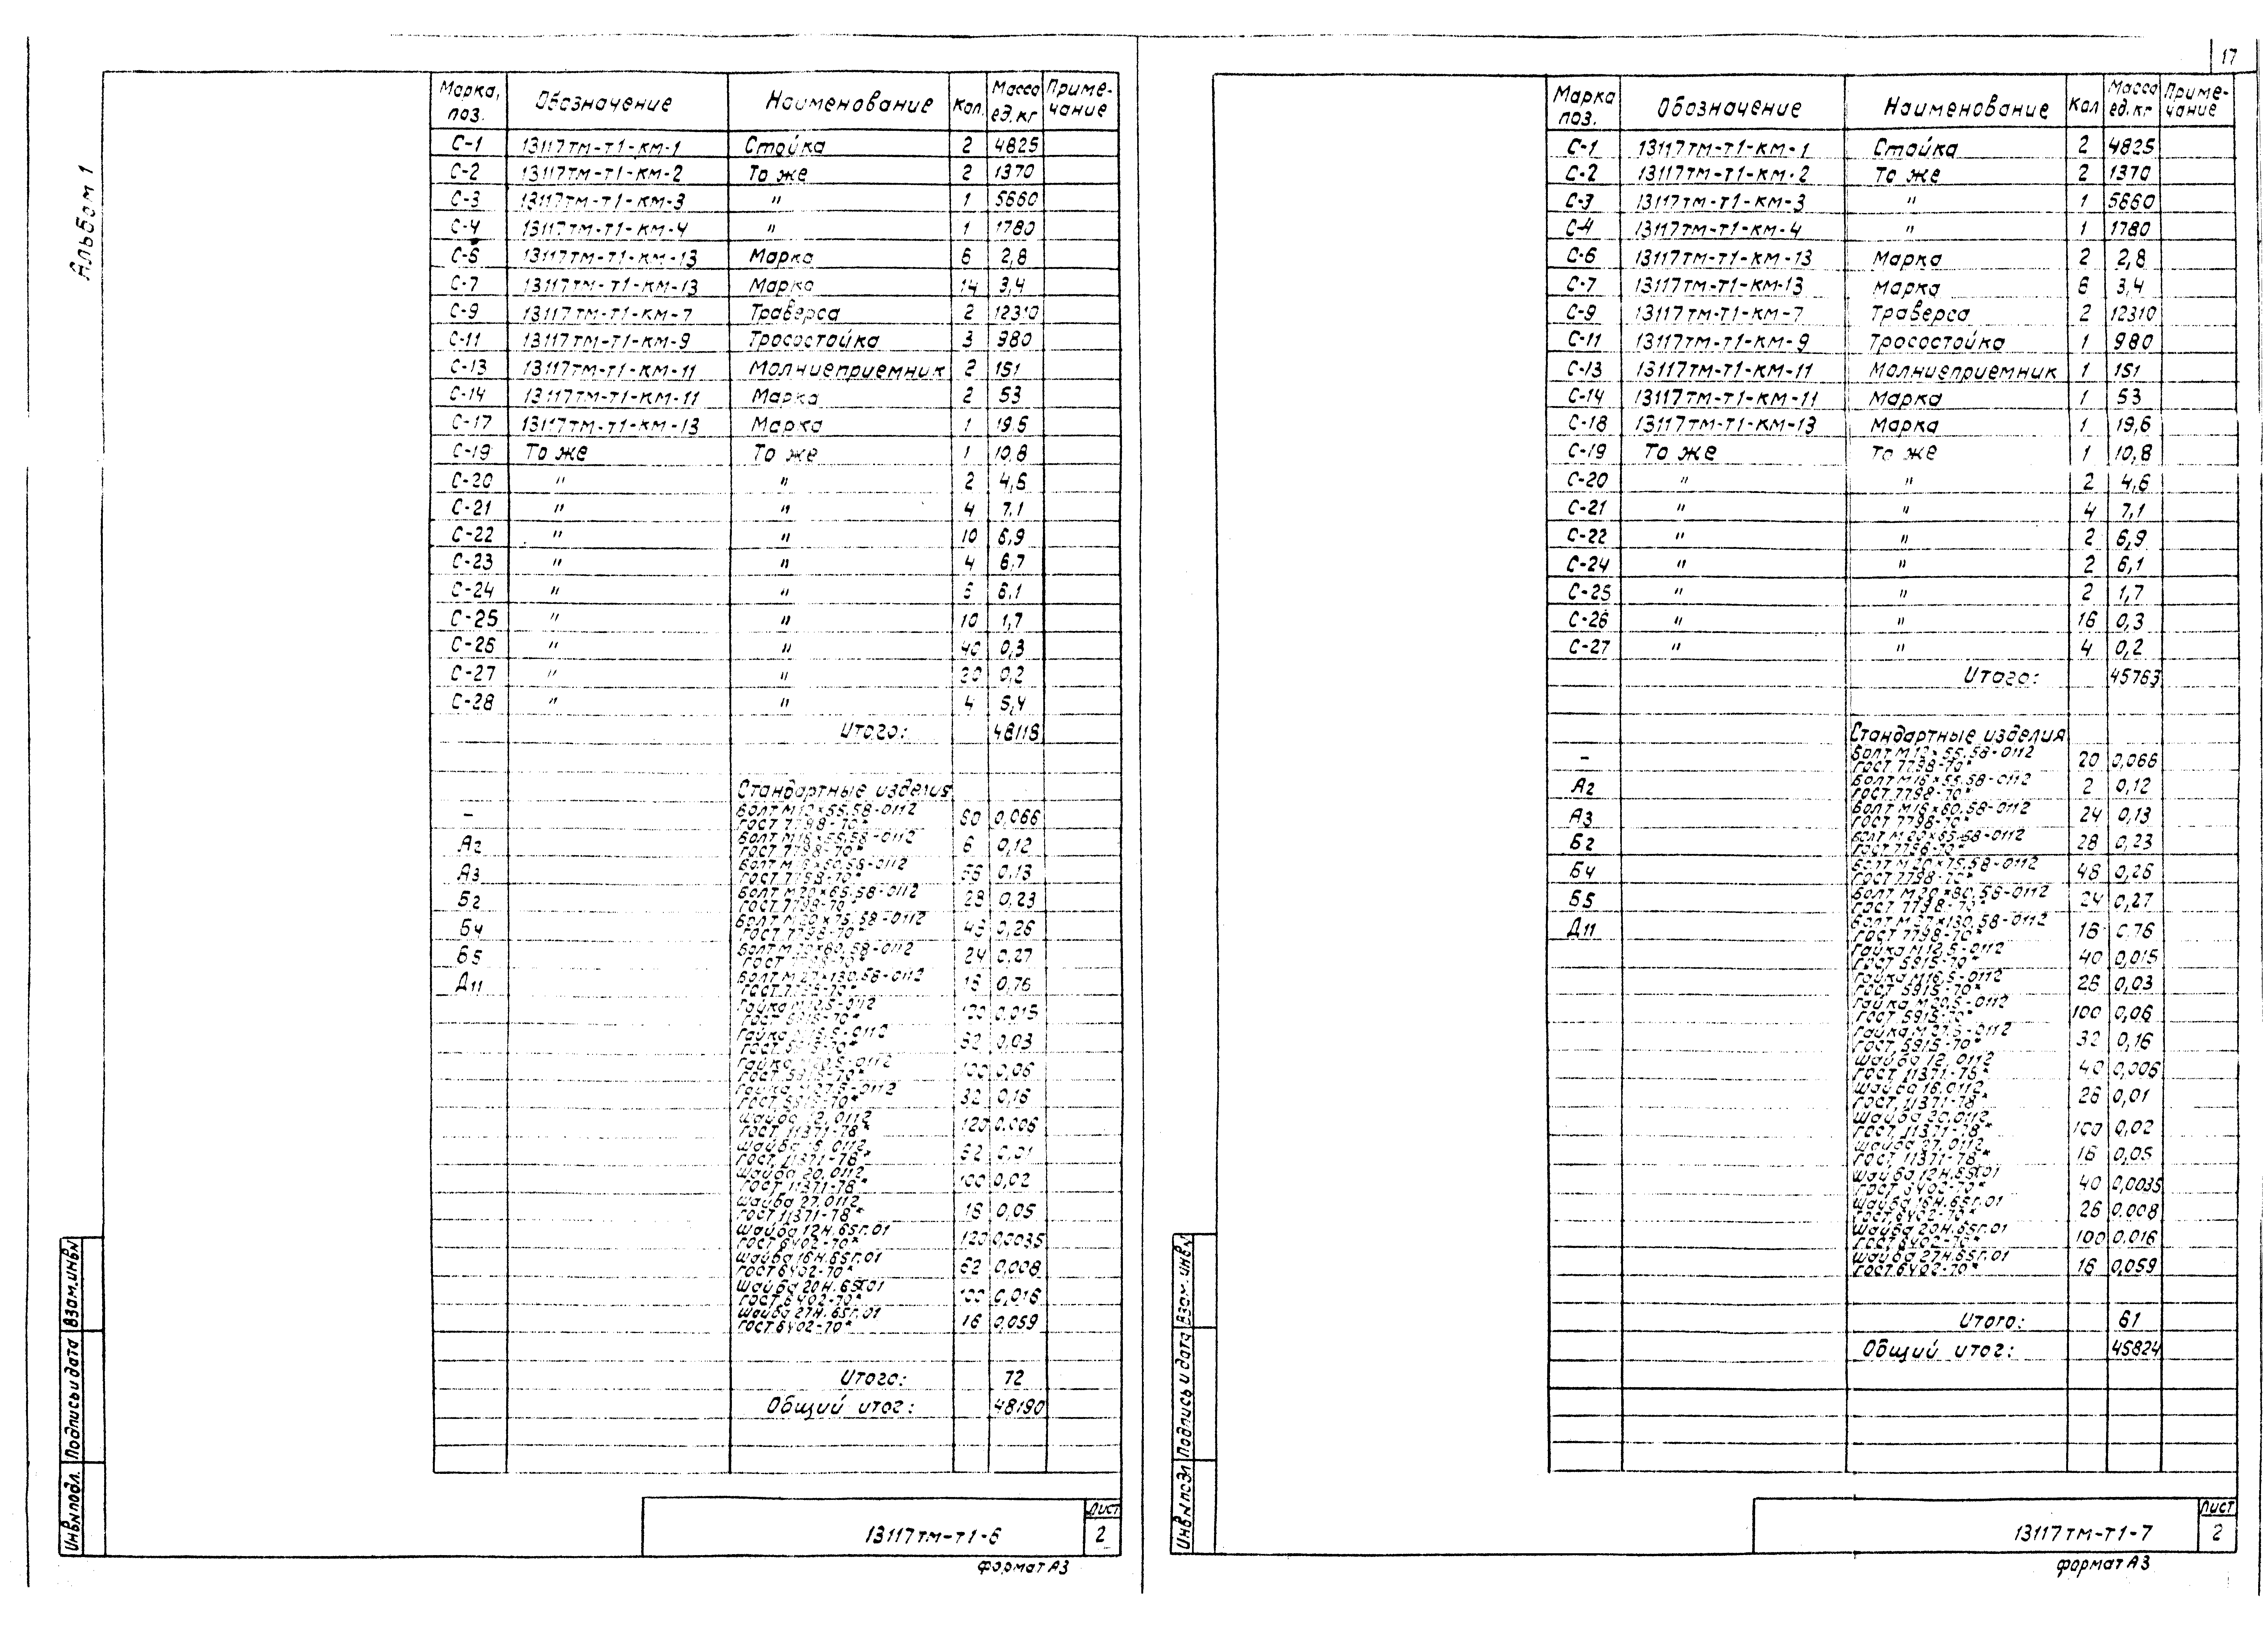 Альбом 1
Марка, поз. Обозначение Наименование Кол. Масса ед. кг Приме-чание
С-1 13117тм-т1-км-1 Стойка 2 4825
С-2 13117тм-т1-км-2 То же 2 1370
С-3 13117тм-т1-км-3 " 1 5660
С-4 13117тм-т1-км-4 " 1 1780
С-6 13117тм-т1-км-13 Марка 6 2,8
С-7 13117тм-т1-км-13 Марка 14 3,4
С-9 13117тм-т1-км-7 Траверса 2 12310
С-11 13117тм-т1-км-9 Тросостойка 3 980
С-13 13117тм-т1-км-11 Молниеприемник 2 151
С-14 13117тм-т1-км-11 Марка 2 53
С-17 13117тм-т1-км-13 Марка 1 19,6
С-19 То же То же 1 10,8
С-20 " " 2 4,6
С-21 " " 4 7,1
С-22 " " 10 6,9
С-23 " " 4 6,7
С-24 " " 6 6,1
С-25 " " 10 1,7
С-26 " " 40 0,3
С-27 " " 20 0,2
С-28 " " 4 5,4
Итого: 48118
Стандартные изделия
- Болт М12×55.58-0112 ГОСТ 7798-70* 60 0,066
А2 Болт М16×55.58-0112 ГОСТ 7798-70* 6 0,12
А3 Болт М16×60.58-0112 ГОСТ 7798-70* 56 0,13
Б2 Болт М20×65.58-0112 ГОСТ 7798-70* 28 0,23
Б4 Болт М20×75.58-0112 ГОСТ 7798-70* 48 0,26
Б5 Болт М20×80.58-0112 ГОСТ 7798-70* 24 0,27
Д11 Болт М27×130.58-0112 ГОСТ 7798-70* 16 0,76
Гайка М12.5-0112 ГОСТ 5915-70* 120 0,015
Гайка М16.5-0112 ГОСТ 5915-70* 62 0,03
Гайка М20.5-0112 ГОСТ 5915-70* 100 0,06
Гайка М27.5-0112 ГОСТ 5915-70* 32 0,16
Шайба 12.0112 ГОСТ 11371-78* 120 0,006
Шайба 16.0112 ГОСТ 11371-78* 62 0,01
Шайба 20.0112 ГОСТ 11371-78* 100 0,02
Шайба 27.0112 ГОСТ 11371-78* 16 0,05
Шайба 12Н.65г.01 ГОСТ 6402-70* 120 0,0035
Шайба 16Н.65г.01 ГОСТ 6402-70* 62 0,008
Шайба 20Н.65г.01 ГОСТ 6402-70* 100 0,016
Шайба 27Н.65г.01 ГОСТ 6402-70* 16 0,059
Итого: 72
Общий итог: 48190
Инв.N подл. Подпись и дата Взам.инв.N
13117тм-т1-6
Лист
2
формат А3
17
Марка поз. Обозначение Наименование Кол Масса ед. кг Приме-чание
С-1 13117тм-т1-км-1 Стойка 2 4825
С-2 13117тм-т1-км-2 То же 2 1370
С-3 13117тм-т1-км-3 " 1 5660
С-4 13117тм-т1-км-4 " 1 1780
С-6 13117тм-т1-км-13 Марка 2 2,8
С-7 13117тм-т1-км-13 Марка 6 3,4
С-9 13117тм-т1-км-7 Траверса 2 12310
С-11 13117тм-т1-км-9 Тросостойка 1 980
С-13 13117тм-т1-км-11 Молниеприемник 1 151
С-14 13117тм-т1-км-11 Марка 1 53
С-18 13117тм-т1-км-13 Марка 1 19,6
С-19 То же То же 1 10,8
С-20 " " 2 4,6
С-21 " " 4 7,1
С-22 " " 2 6,9
С-24 " " 2 6,1
С-25 " " 2 1,7
С-26 " " 16 0,3
С-27 " " 4 0,2
Итого: 45763
Стандартные изделия
- Болт М12×55.58-0112 ГОСТ 7798-70* 20 0,066
А2 Болт М16×55.58-0112 ГОСТ 7798-70* 2 0,12
А3 Болт М16×60.58-0112 ГОСТ 7798-70* 24 0,13
Б2 Болт М20×65.58-0112 ГОСТ 7798-70* 28 0,23
Б4 Болт М20×75.58-0112 ГОСТ 7798-70* 48 0,26
Б5 Болт М20×80.58-0112 ГОСТ 7798-70* 24 0,27
Д11 Болт М27×130.58-0112 ГОСТ 7798-70* 16 0,76
Гайка М12.5-0112 ГОСТ 5915-70* 40 0,015
Гайка М16.5-0112 ГОСТ 5915-70* 26 0,03
Гайка М20.5-0112 ГОСТ 5915-70* 100 0,06
Гайка М27.5-0112 ГОСТ 5915-70* 32 0,16
Шайба 12.0112 ГОСТ 11371-78* 40 0,006
Шайба 16.0112 ГОСТ 11371-78* 26 0,01
Шайба 20.0112 ГОСТ 11371-78* 100 0,02
Шайба 27.0112 ГОСТ 11371-78* 16 0,05
Шайба 12Н.65г.01 ГОСТ 6402-70* 40 0,0035
Шайба 16Н.65г.01 ГОСТ 6402-70* 26 0,008
Шайба 20Н.65г.01 ГОСТ 6402-70* 100 0,016
Шайба 27Н.65г.01 ГОСТ 6402-70* 16 0,059
Итого: 61
Общий итог: 45824
Инв.N подл Подпись и дата Взам.инв.N
13117тм-т1-7
Лист
2
формат А3